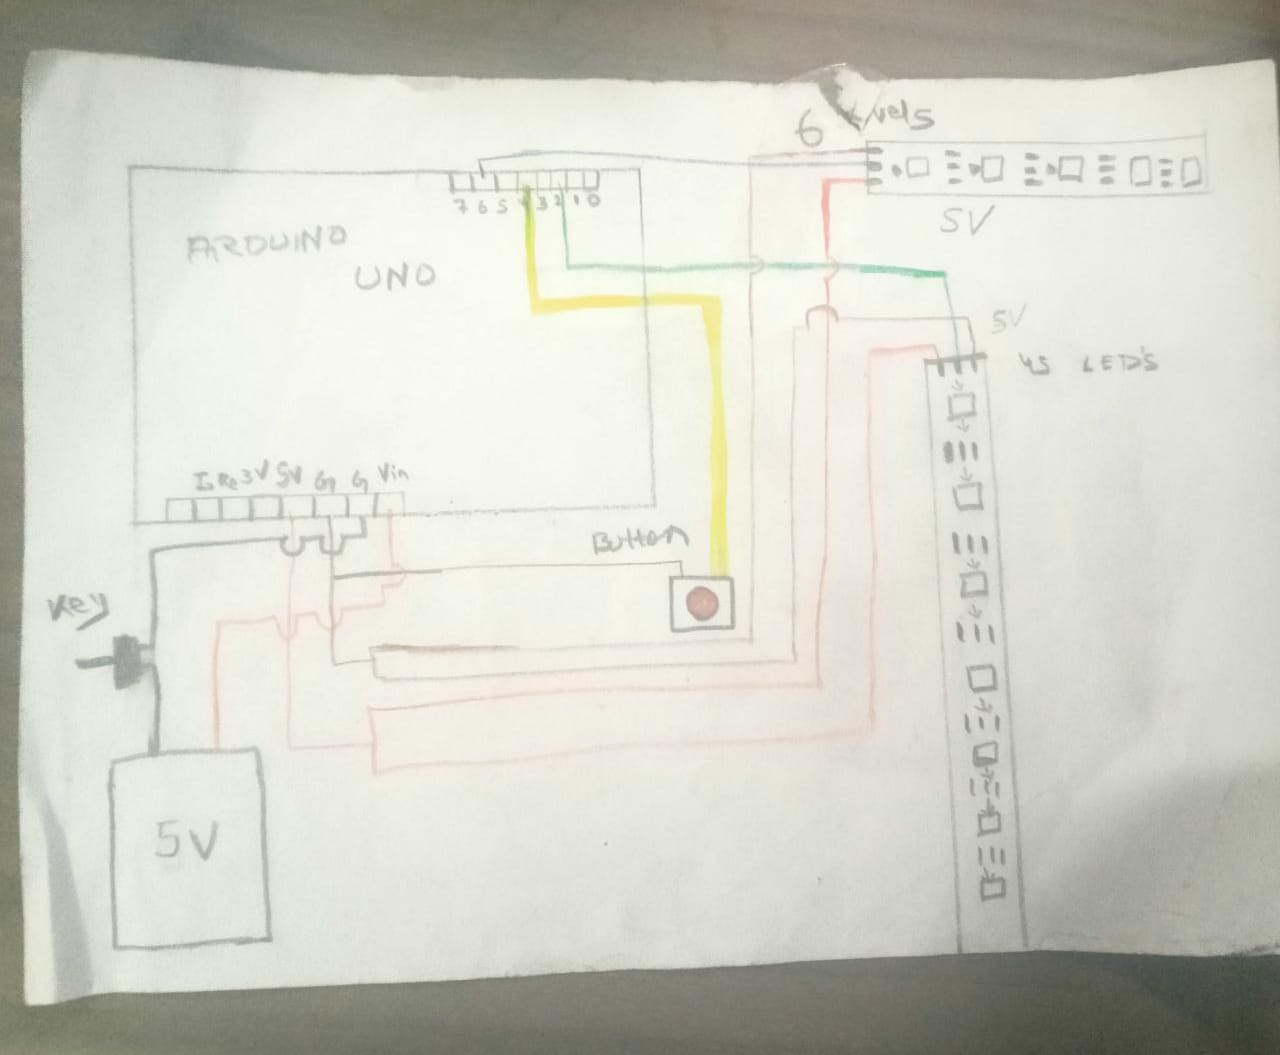 6
5V
7 6 5 4 3 2 1 0
ARDUINO
UNO
5V
45 LED'S
Re 3V 5V G G Vin
Button
Key
5V